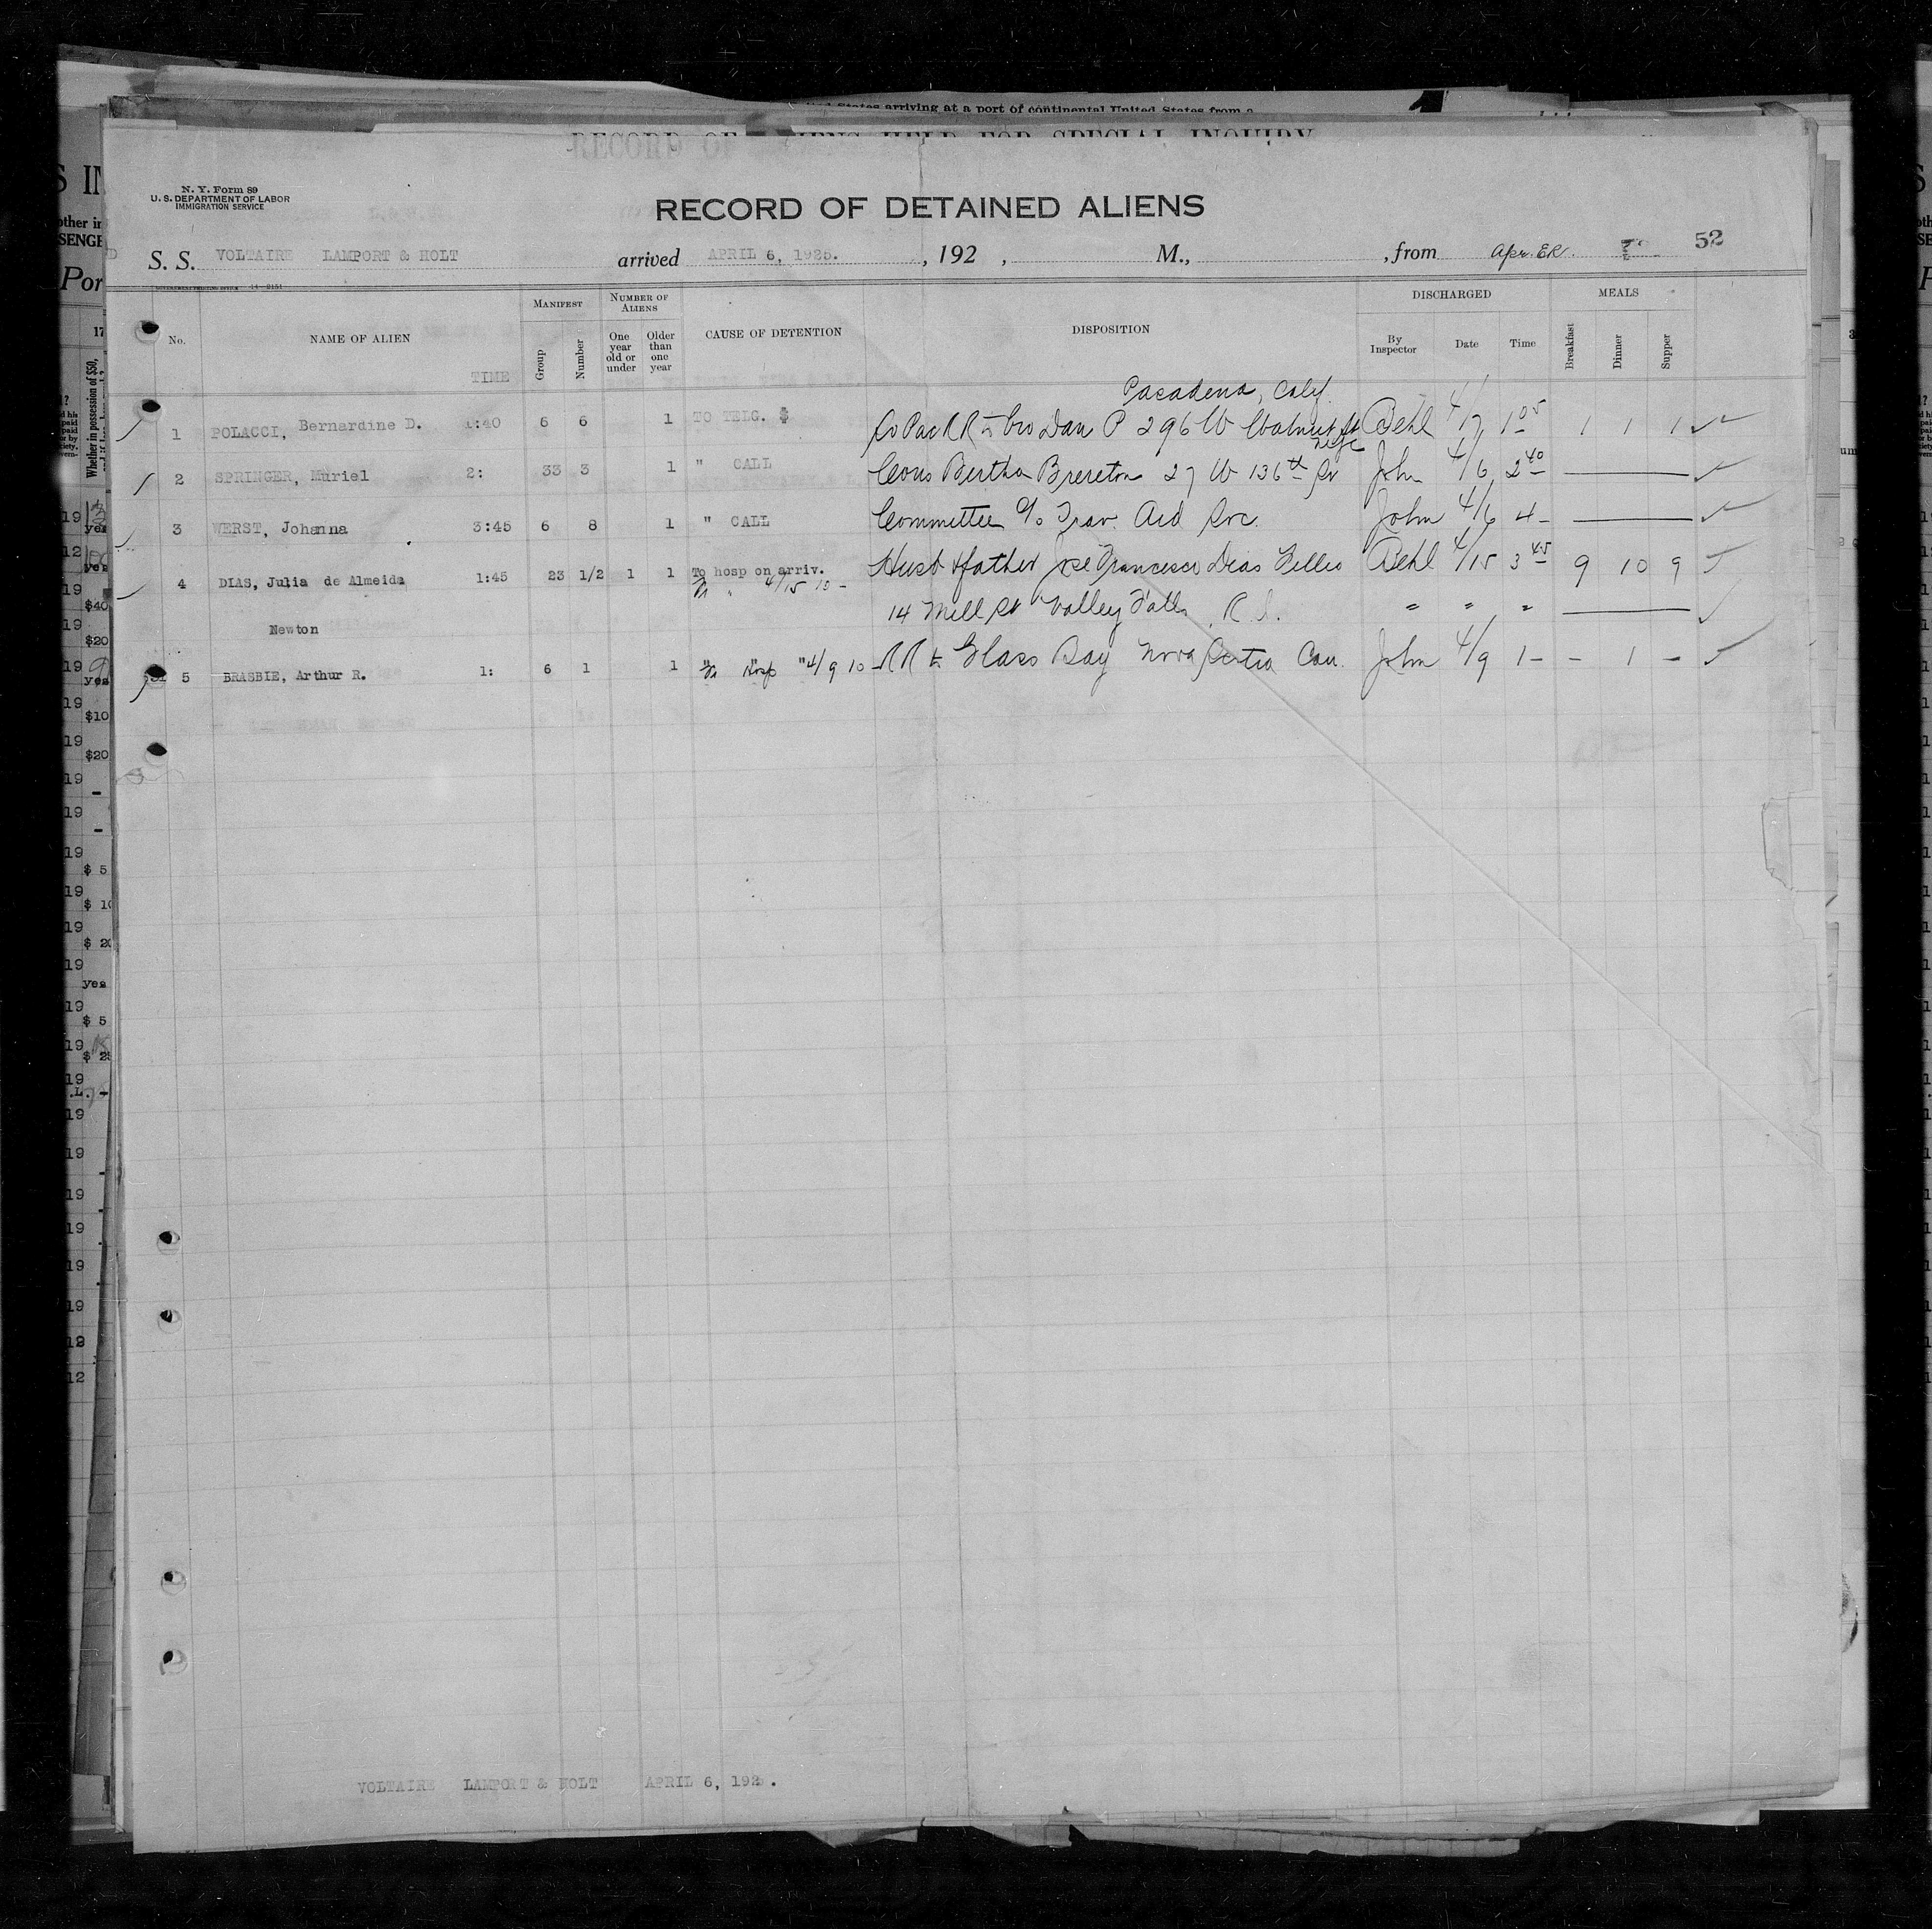 RECORD OF ALIENS HELD FOR SPECIAL INQUIRY
N. Y. Form 89
U. S. DEPARTMENT OF LABOR
IMMIGRATION SERVICE
RECORD OF DETAINED ALIENS
52
S. S. VOLTAIRE LAMPORT & HOLT arrived APRIL 6, 1925. , 192 , M., , from
No. NAME OF ALIEN TIME MANIFEST Group Number NUMBER OF ALIENS One year old or under Older than one year CAUSE OF DETENTION DISPOSITION DISCHARGED By Inspector Date Time MEALS Breakfast Dinner Supper
Pasadena, Calif.
1 POLACCI, Bernardine D. 1:40 6 6 1 TO TELG. $ So Pac RR to bro Dan P 296 W Walnut St Behl 4/7 1 05 1 1 1
NYC
2 SPRINGER, Muriel 2: 33 3 1 " CALL Cous Bertha Brereton 27 W 136th St John 4/6 2 40
3 WERST, Johanna 3:45 6 8 1 " CALL Committee c/o Trav. Aid Soc. John 4/6 4 -
4 DIAS, Julia de Almeida 1:45 23 1/2 1 1 To hosp on arriv. Husb & father Jose Francesco Dias Behl 4/15 3 45 9 10 9
" 4/15 10 -
Newton 14 Mill St Valley Falls, R. I. " " "
5 BRASBIE, Arthur R. 1: 6 1 1 " Hosp " 4/9 10 - RR to Glass Bay Nova Scotia Can. John 4/9 1 - - 1 -
VOLTAIRE LAMPORT & HOLT APRIL 6, 192 .